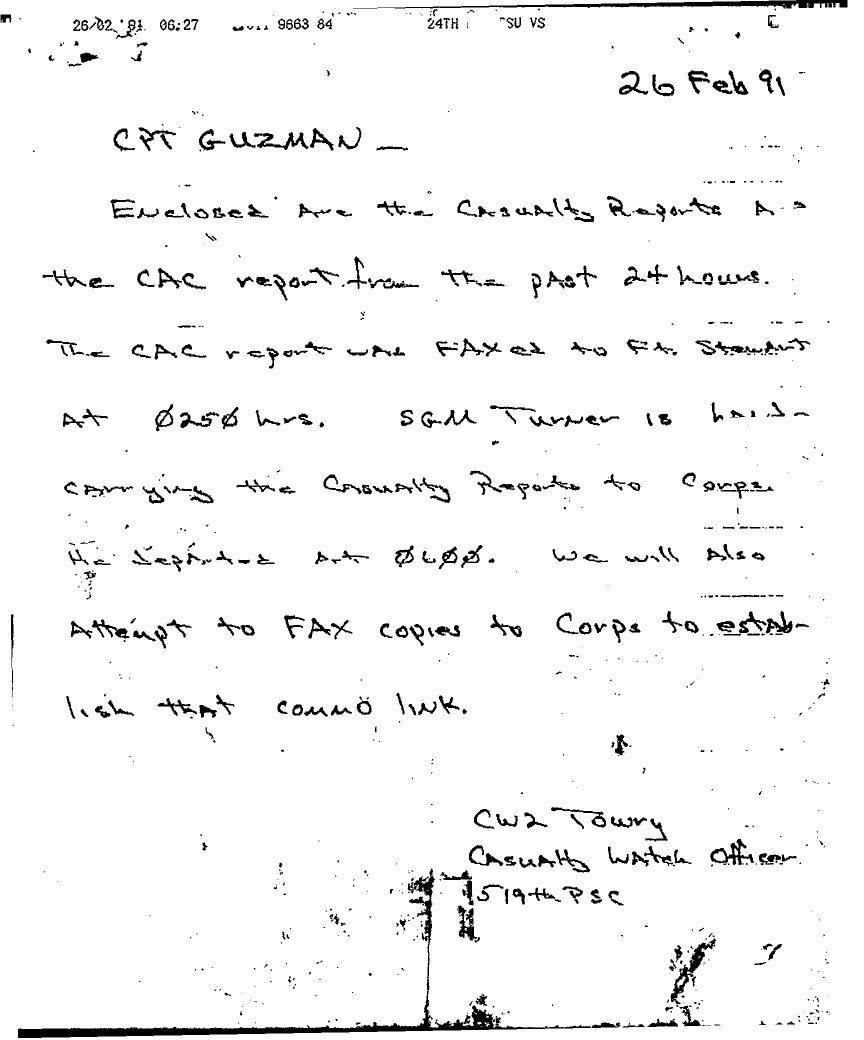 26/02 '91 06:27 9663 84 24TH SU VS
26 Feb 91
CPT GUZMAN —
Enclosed are the Casualty Reports
the CAC report from the past 24 hours.
The CAC report was FAXed to Ft. Stewart
At Ø25Ø hrs. SGM Turner is hand-
carrying the Casualty Reports to Corps.
He departed At Ø6ØØ. We will Also
Attempt to FAX copies to Corps to estab-
lish that commo link.
CW2 Towry
Casualty Watch Officer
519th PSC